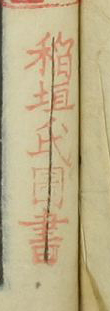 稲垣氏圖書